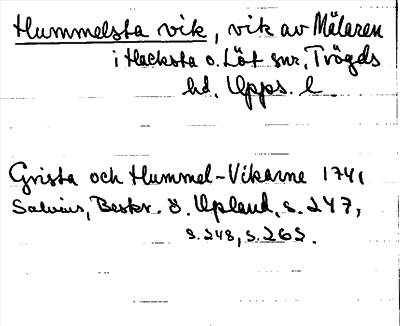 Hummelsta vik, vik av Mälaren
i Hacksta o. Löt snr, Trögds
hd, Upps. l.
Grista och Hummel-Vikarne 1741
Salvius, Beskr. ö. Upland, s. 247,
s. 248, s. 265.